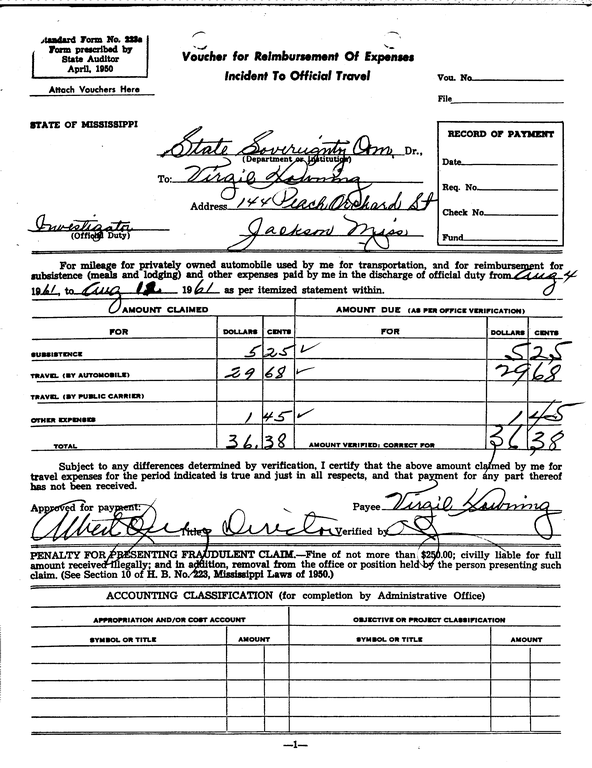 Standard Form No. 223a
Form prescribed by
State Auditor
April, 1950
Attach Vouchers Here
Voucher for Reimbursement Of Expenses
Incident To Official Travel
Vou. No.
File
STATE OF MISSISSIPPI
State Sovereignty Com. Dr.,
(Department or Institution)
To: Virgil Downing
Address 144 Peach Orchard St
Jackson Miss
Investigator
(Official Duty)
RECORD OF PAYMENT
Date
Req. No.
Check No.
Fund
For mileage for privately owned automobile used by me for transportation, and for reimbursement for
subsistence (meals and lodging) and other expenses paid by me in the discharge of official duty from Aug 4
1961, to Aug 12 1961 as per itemized statement within.
AMOUNT CLAIMED AMOUNT DUE (AS PER OFFICE VERIFICATION)
FOR DOLLARS CENTS FOR DOLLARS CENTS
SUBSISTENCE 5 25 ✓ 5 25
TRAVEL (BY AUTOMOBILE) 29 68 ✓ 29 68
TRAVEL (BY PUBLIC CARRIER)
OTHER EXPENSES 1 45 ✓ 1 45
TOTAL 36.38 AMOUNT VERIFIED; CORRECT FOR 36 38
Subject to any differences determined by verification, I certify that the above amount claimed by me for
travel expenses for the period indicated is true and just in all respects, and that payment for any part thereof
has not been received.
Approved for payment: Payee Virgil Downing
Albert Title Director Verified by
PENALTY FOR PRESENTING FRAUDULENT CLAIM.—Fine of not more than $250.00; civilly liable for full
amount received illegally; and in addition, removal from the office or position held by the person presenting such
claim. (See Section 10 of H. B. No. 223, Mississippi Laws of 1950.)
ACCOUNTING CLASSIFICATION (for completion by Administrative Office)
APPROPRIATION AND/OR COST ACCOUNT OBJECTIVE OR PROJECT CLASSIFICATION
SYMBOL OR TITLE AMOUNT SYMBOL OR TITLE AMOUNT
—1—